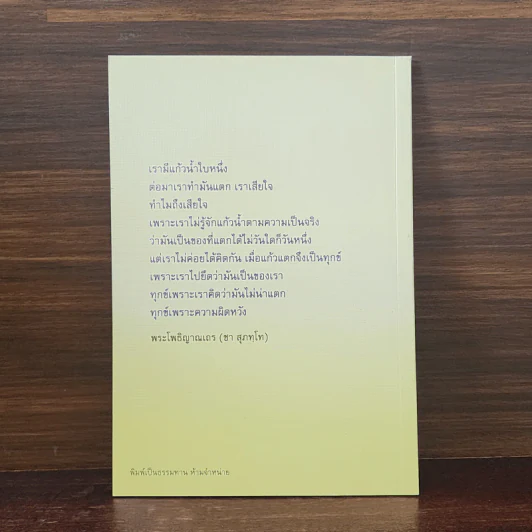 เรามีแก้วน้ำใบหนึ่ง
ต่อมาเราทำมันแตก เราเสียใจ
ทำไมถึงเสียใจ
เพราะเราไม่รู้จักแก้วน้ำตามความเป็นจริง
ว่ามันเป็นของที่แตกได้ไม่วันใดก็วันหนึ่ง
แต่เราไม่ค่อยได้คิดกัน เมื่อแก้วแตกจึงเป็นทุกข์
เพราะเราไปยึดว่ามันเป็นของเรา
ทุกข์เพราะเราคิดว่ามันไม่น่าแตก
ทุกข์เพราะความผิดหวัง
พระโพธิญาณเถร (ชา สุภทฺโท)
พิมพ์เป็นธรรมทาน ห้ามจำหน่าย